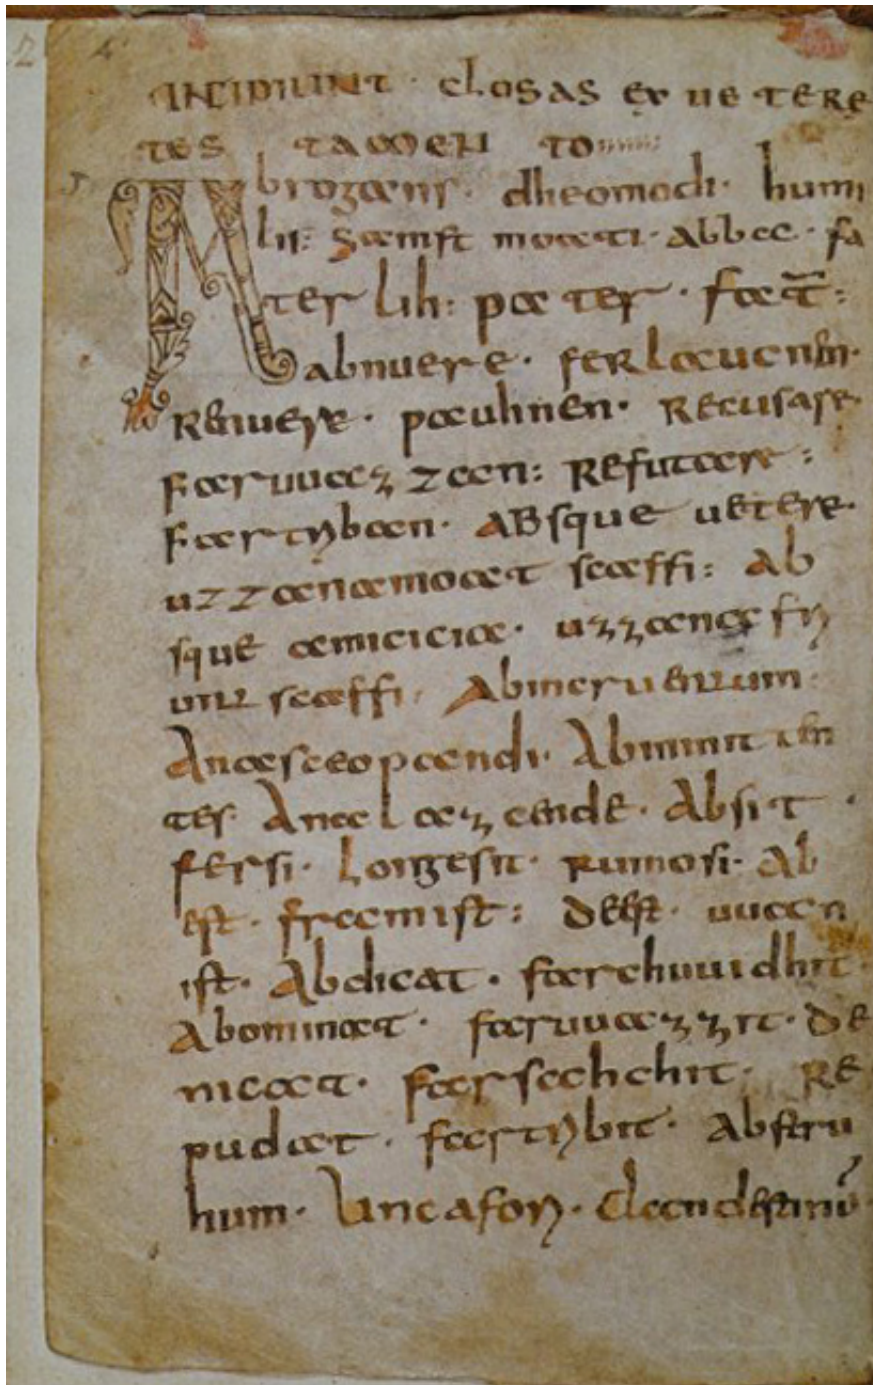 INCIPIUNT · CLOSAS EX UETERE
TES TAMEN TO
Abrogans · dheomodi · humi
lis: samft moati · abbac · fa
ter lih: pater · fat̄:
abnuere · ferlaucnen ·
Renuere · pauhnen · Recusare
faruuazzan: Refutare:
fartriban · ABsque uetere ·
uzzanamoat scaffi: Ab
sque amicicia · uzzana fri
unt scaffi · Abincruentum ·
Anasceopandi · Abininten
tes · Analazcende · Absit ·
fersi · Longesit · rumosi · Ab
est · framist: deest · uuan
ist · Abdicat · farchuuidhit ·
Abominat · faruuazzit · de
nicat · farsahchit · Re
pudat · fartribit · Abstru
hum · Uncafori · Clandestinū ·